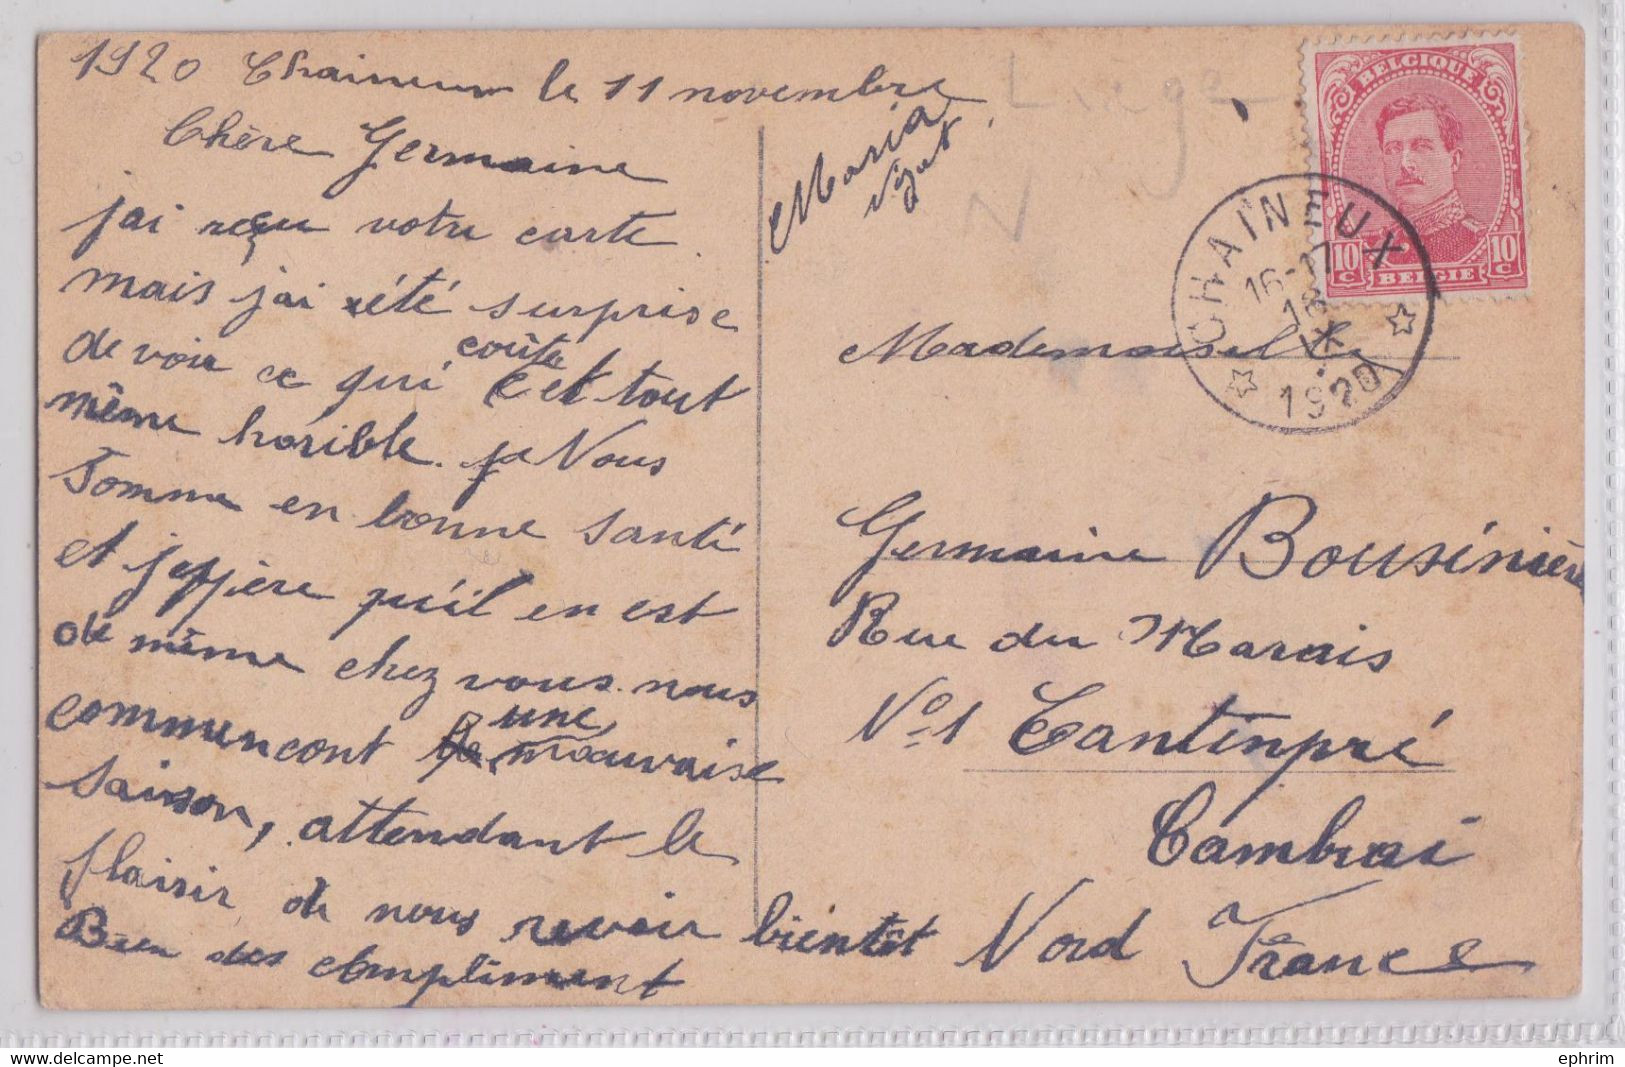 1920 Chaineux le 11 novembre
Chère Germaine
jai reçu votre carte
mais jai été surprise
de voir ce qui coûte c'et tout
même horible. je Nous
somme en bonne santé
et jespère qu'il en est
de même chez vous. nous
commuencont une mauvaise
saison, attendant le
plaisir de nous revoir bientôt
Bien des compliment
Maria
Liége
N
BELGIQUE
10 C
10 C
BELGIE
CHAINEUX
16-17
1920
Mademoiselle
Germaine Bousinière
Rue du Marais
N° 1 Cantinpré
Cambrai
Nord France
ephrim